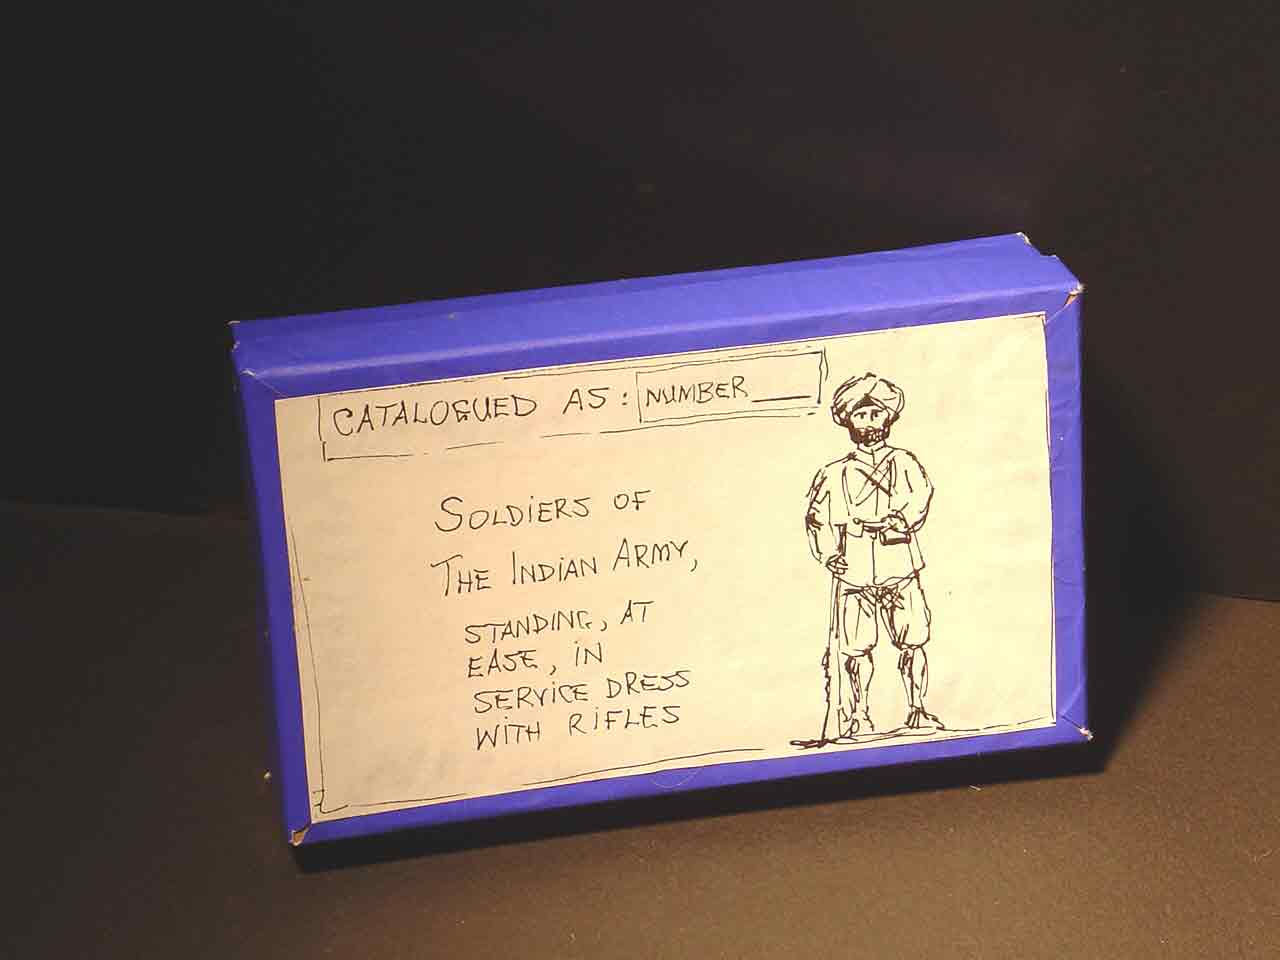 CATALOGUED AS: NUMBER ___
SOLDIERS OF
THE INDIAN ARMY,
STANDING, AT
EASE, IN
SERVICE DRESS
WITH RIFLES